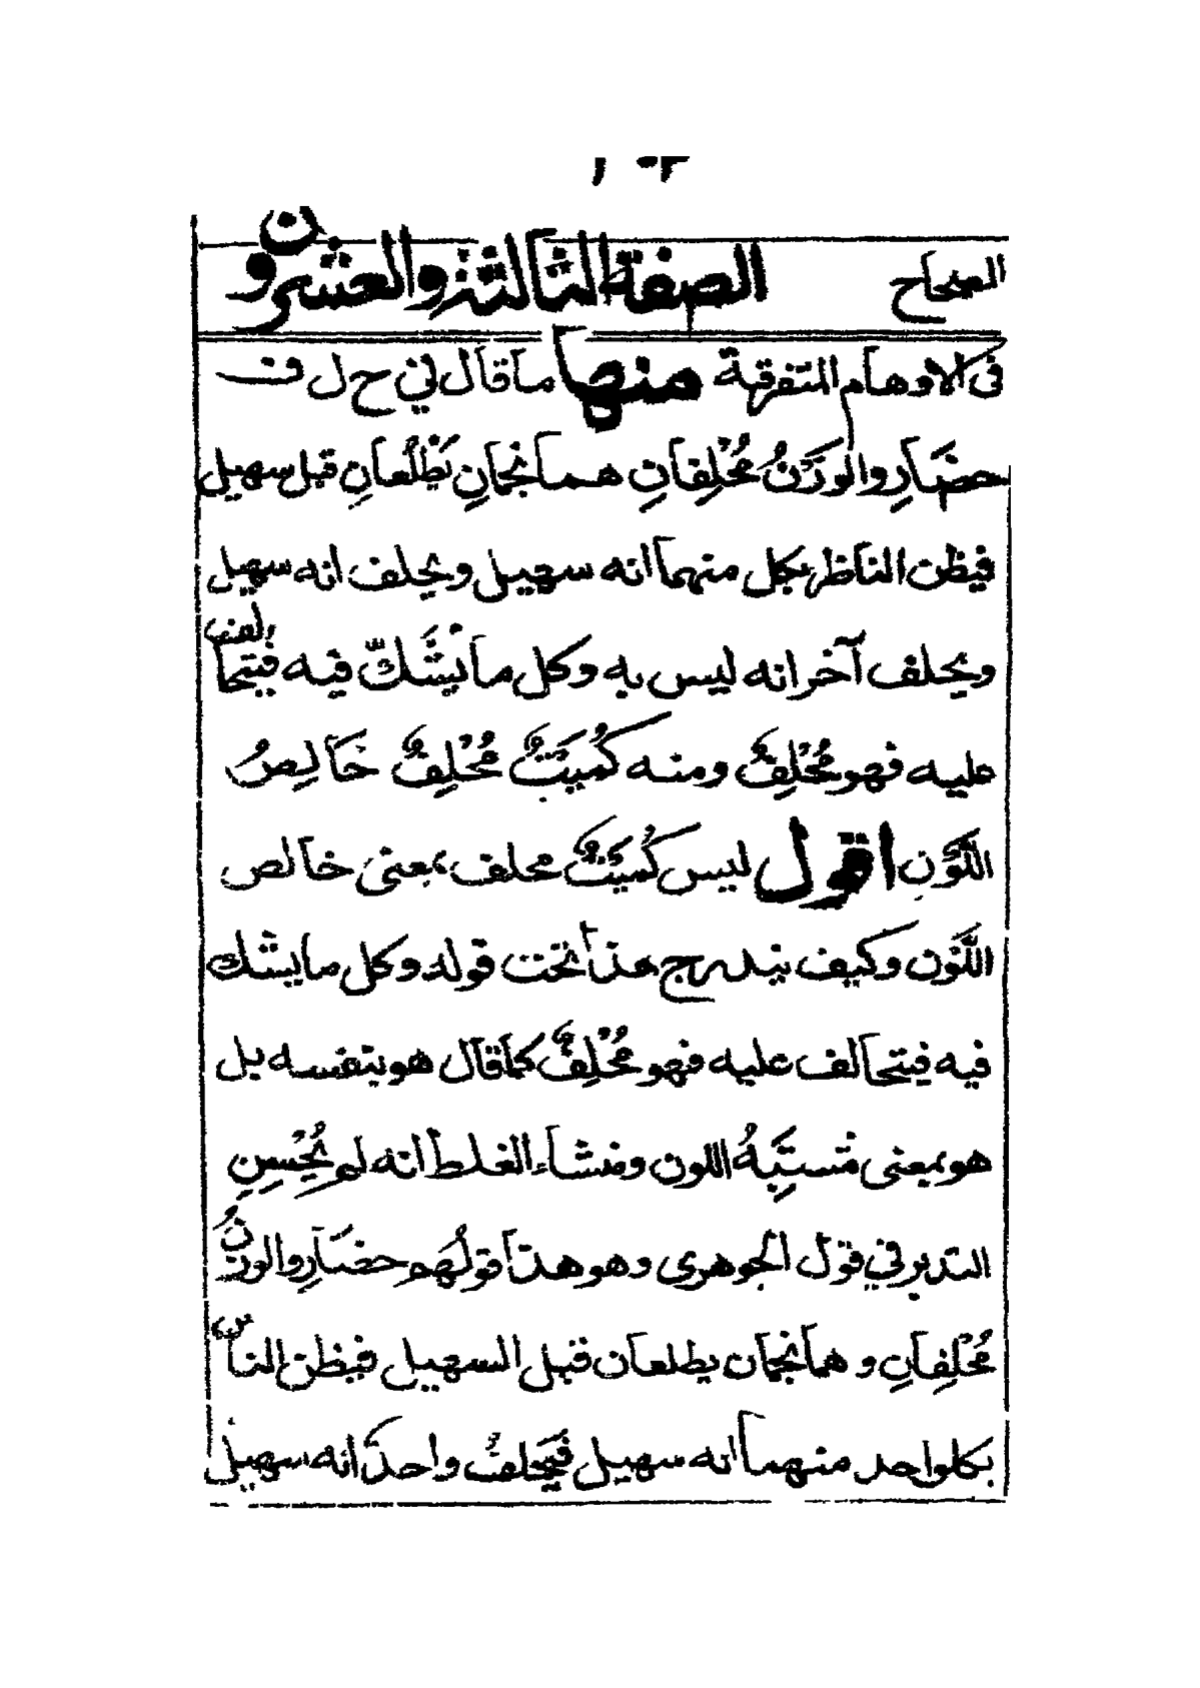 الصحاح الصفة الثالثة والعشرون
فى الاوهام المتفرقة منها ما قال في ح ل ف
حضَارِ والوزنُ مُحْلِفَانِ هما نجمانِ يَطْلُعانِ قبل سهيل
فيظن الناظر بكل منهما انه سهيل ويحلف انه سهيل
ويحلف آخر انه ليس به وكل ما يُشَكّ فيه فيتحالف
عليه فهو مُحْلِفٌ ومنه كُمَيْتٌ مُحْلِفٌ خَالِصُ
اللَّوْنِ اقول ليس كُمَيْتٌ محلف بمعنى خالص
اللَّوْن وكيف يندرج هذا تحت قوله وكل ما يشك
فيه فيتحالف عليه فهو مُحْلِفٌ كما قال هو بنفسه بل
هو بمعنى مُشتَبِهُ اللون ومنشاء الغلط انه لم يُحْسِنِ
التدبر في قول الجوهرى وهو هذا قولهم حضَارِ والوزنُ
مُحْلِفانِ و هما نجمان يطلعان قبل السهيل فيظن الناس
بكل واحد منهما انه سهيل فيَحْلف واحد انه سهيل